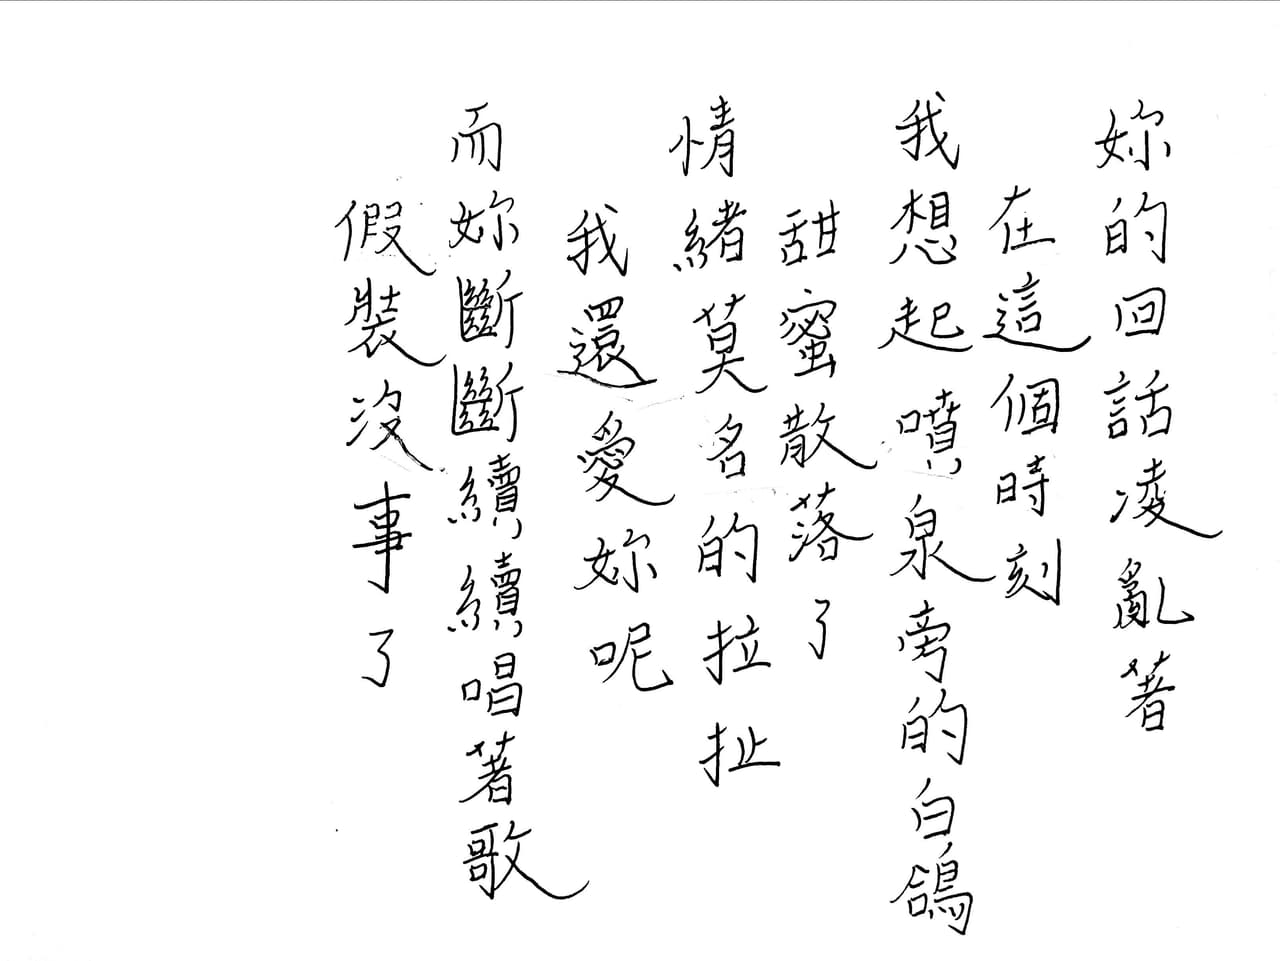 妳的回話凌亂著
在這個時刻
我想起噴泉旁的白鴿
甜蜜散落了
情緒莫名的拉扯
我還愛妳呢
而妳斷斷續續唱著歌
假裝沒事了